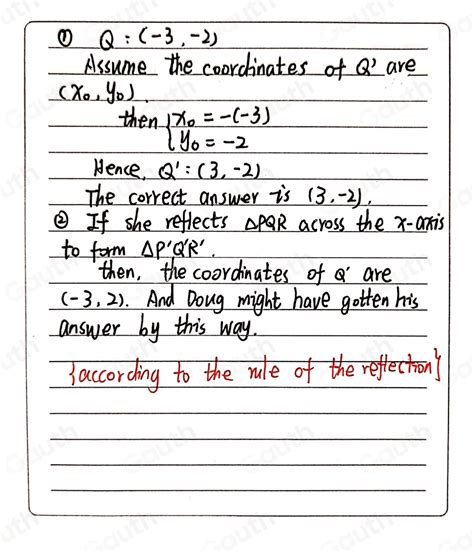 ① Q : (-3, -2)
Assume the coordinates of Q' are
(x₀, y₀).
then { x₀ = -(-3)
y₀ = -2
Hence, Q' : (3, -2)
The correct answer is (3, -2).
② If she reflects △PQR across the x-axis
to form △P'Q'R'.
then, the coordinates of Q' are
(-3, 2). And Doug might have gotten his
answer by this way.
{according to the rule of the reflection}